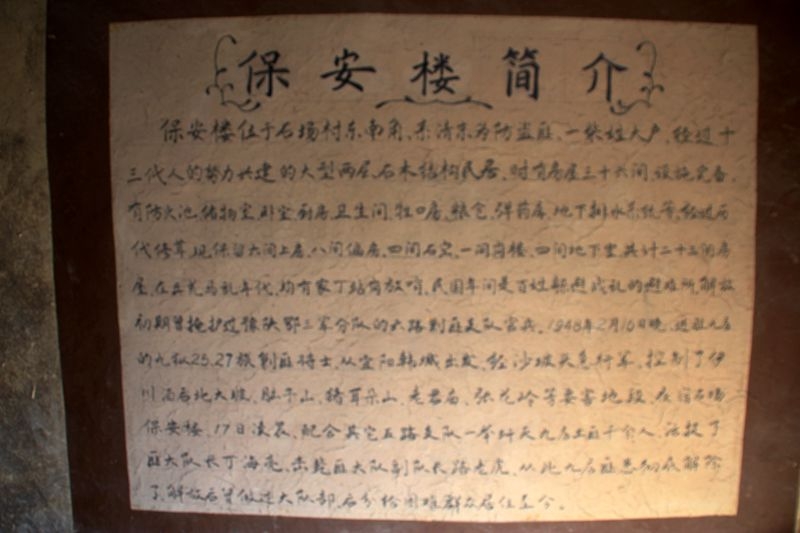 保安楼简介
保安楼位于石场村东南角、系清末为防盗匪、一柴姓大户、经过十
三代人的努力共建的大型两层、石木结构民居、时有房屋三十六间、设施完备、
有防火池、储物室、卧室、厨房、卫生间、牲口房、粮仓、弹药库、地下排水系统等、经过历
代修葺、现保留六间上房、八间偏房、四间石窑、一间岗楼、四间地下室、共计二十三间房
屋、在兵荒马乱年代、均有家丁站岗放哨、民国年间是百姓躲避战乱的避难所、解放
初期曾掩护过豫陕鄂三军分队的六路剿匪支队官兵、1948年2月16日晚、进驻九店
的九纵25、27旅剿匪将士、从宜阳韩城出发、经沙坡头急行军、控制了伊
川酒后北大坡、肚子山、猪耳朵山、老君庙、张龙岭等要害地段、夜宿石场
保安楼、17日凌晨、配合其它五路支队一举歼灭九店土匪千余人、活捉了
匪大队长丁海亮、击毙匪大队副队长路老虎、从此九店匪患彻底解除
了、解放后曾做过大队部、后分给困难群众居住至今。